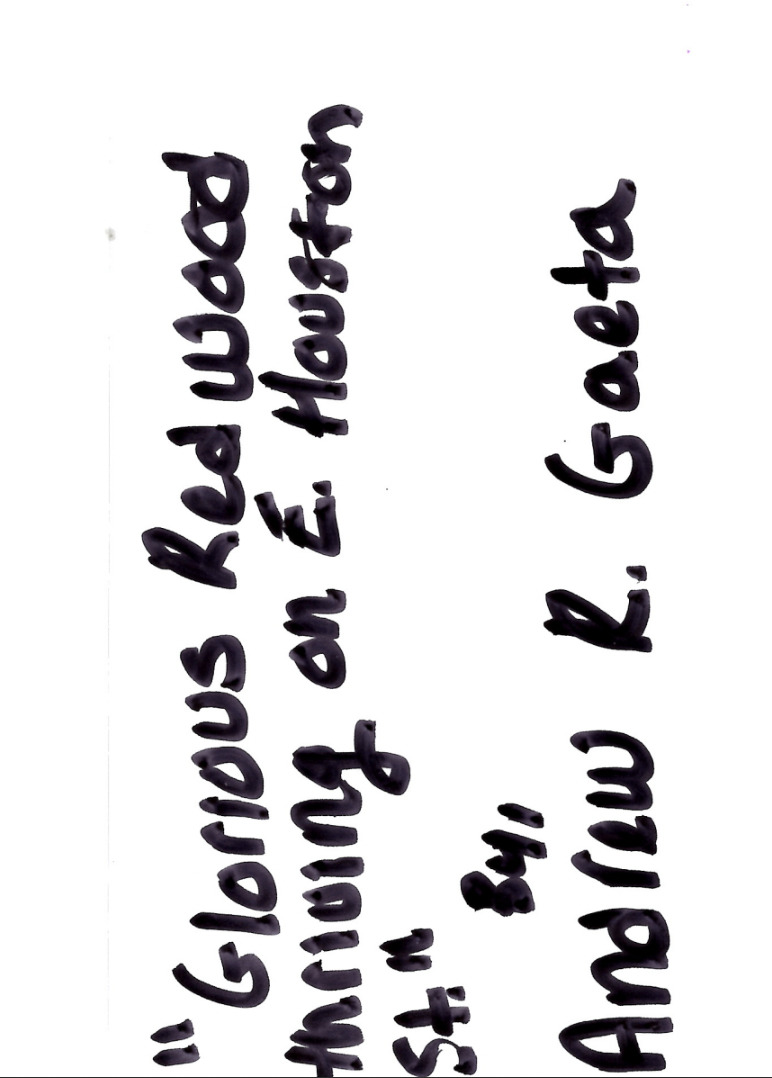 "Glorious Red Wood
thriving on E. Houston
St."
By,
Andrew R. Gaeta